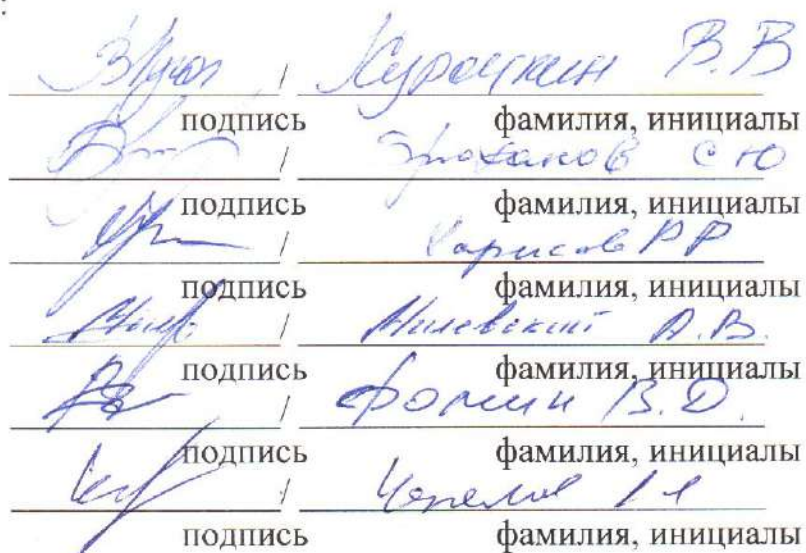 / Курочкин В.В
подпись фамилия, инициалы
/ С Ю
подпись фамилия, инициалы
/ Харисов Р Р
подпись фамилия, инициалы
/ Милевский А.В.
подпись фамилия, инициалы
/ Фомин В.Д.
подпись фамилия, инициалы
/
подпись фамилия, инициалы